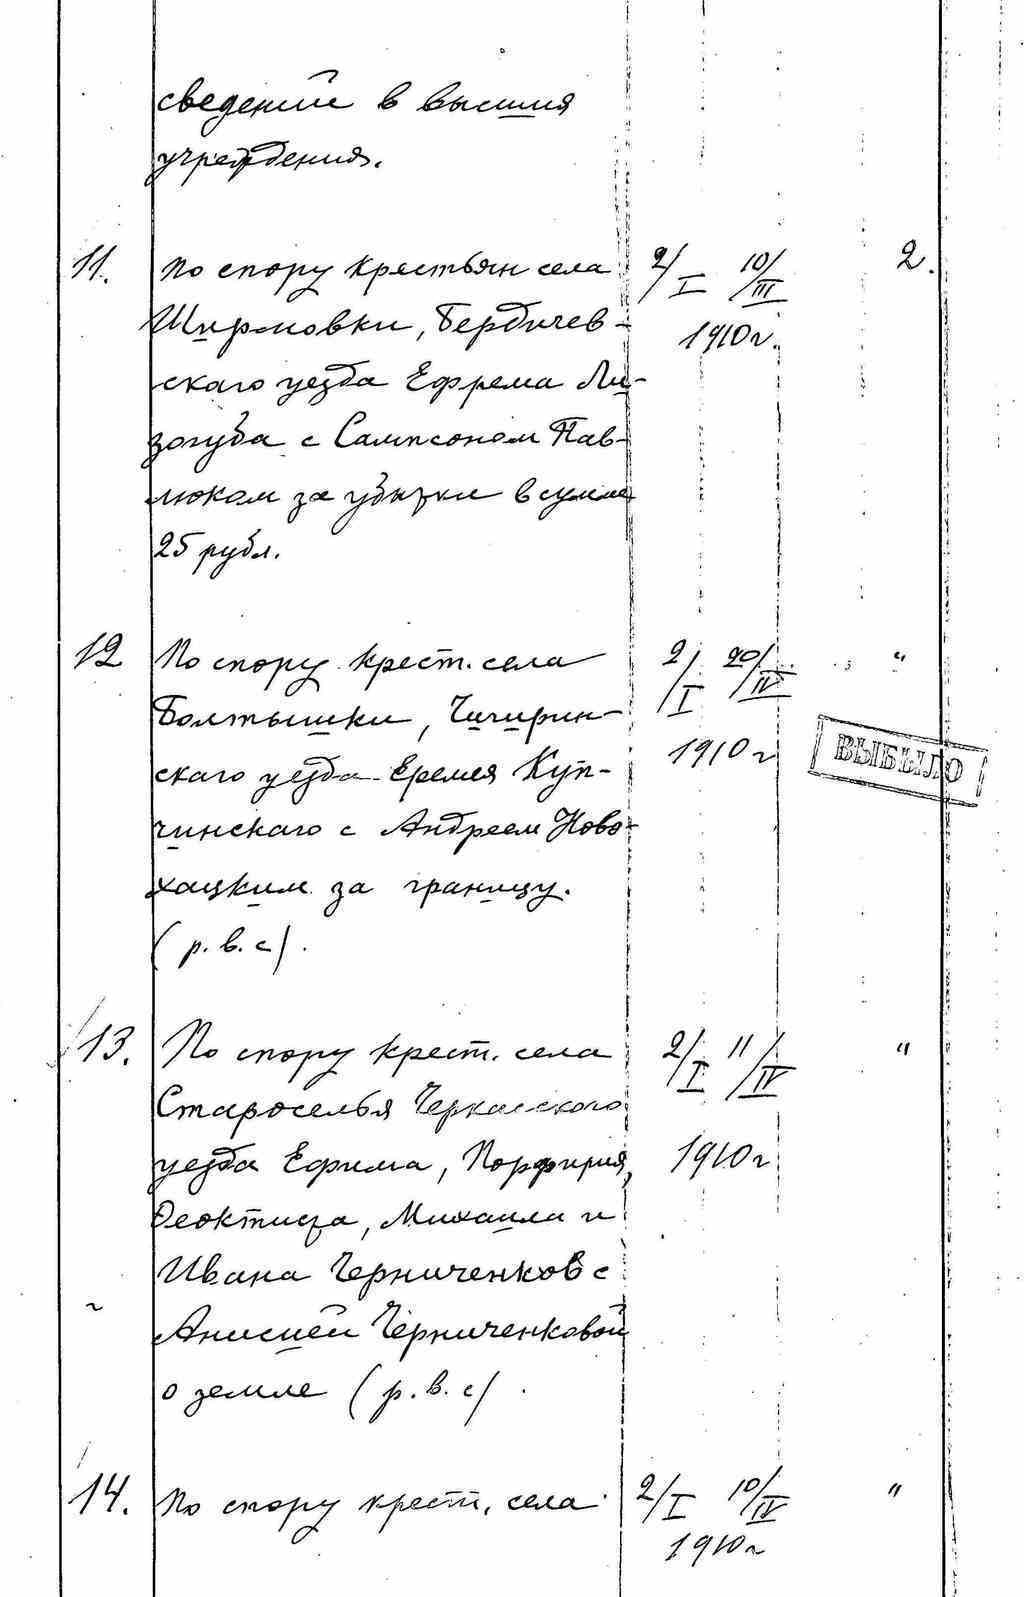 сведений в высшия
учреждения.
11. По спору крестьян села 2/I 10/III 2.
Ширмовки, Бердичев- 1910 г.
скаго уезда Ефрема Ли-
зогуба с Сампсоном Пав-
люком за убытки в сумме
25 рубл.
12 По спору крест. села 2/I 20/IV "
Болтышки, Чигирин- 1910 г
скаго уезда Еремея Куп- ВЫБЫЛО
чинскаго с Андреем Ново-
хацким за границу.
(р.в.с).
13. По спору крест. села 2/I 11/IV "
Староселья Черкасского
уезда Ефима, Порфирия, 1910 г
Феоктиста, Михаила и
Ивана Черниченков с
Анисией Черниченковой
о земле (р.в.с).
14. По спору крест. села 2/I 10/IV "
1910 г